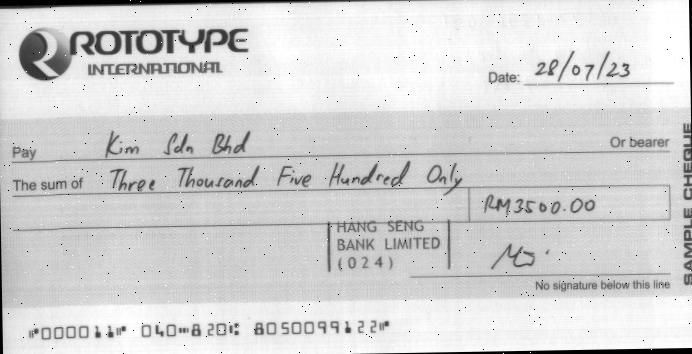 ROTOTYPE
INTERNATIONAL
Date: 28/07/23
Pay Kim Sdn Bhd Or bearer
The sum of Three Thousand Five Hundred Only
RM3500.00
HANG SENG
BANK LIMITED
(024)
No signature below this line
SAMPLE CHEQUE
⑈000011⑈ 040⑉820⑆ 8050099122⑈